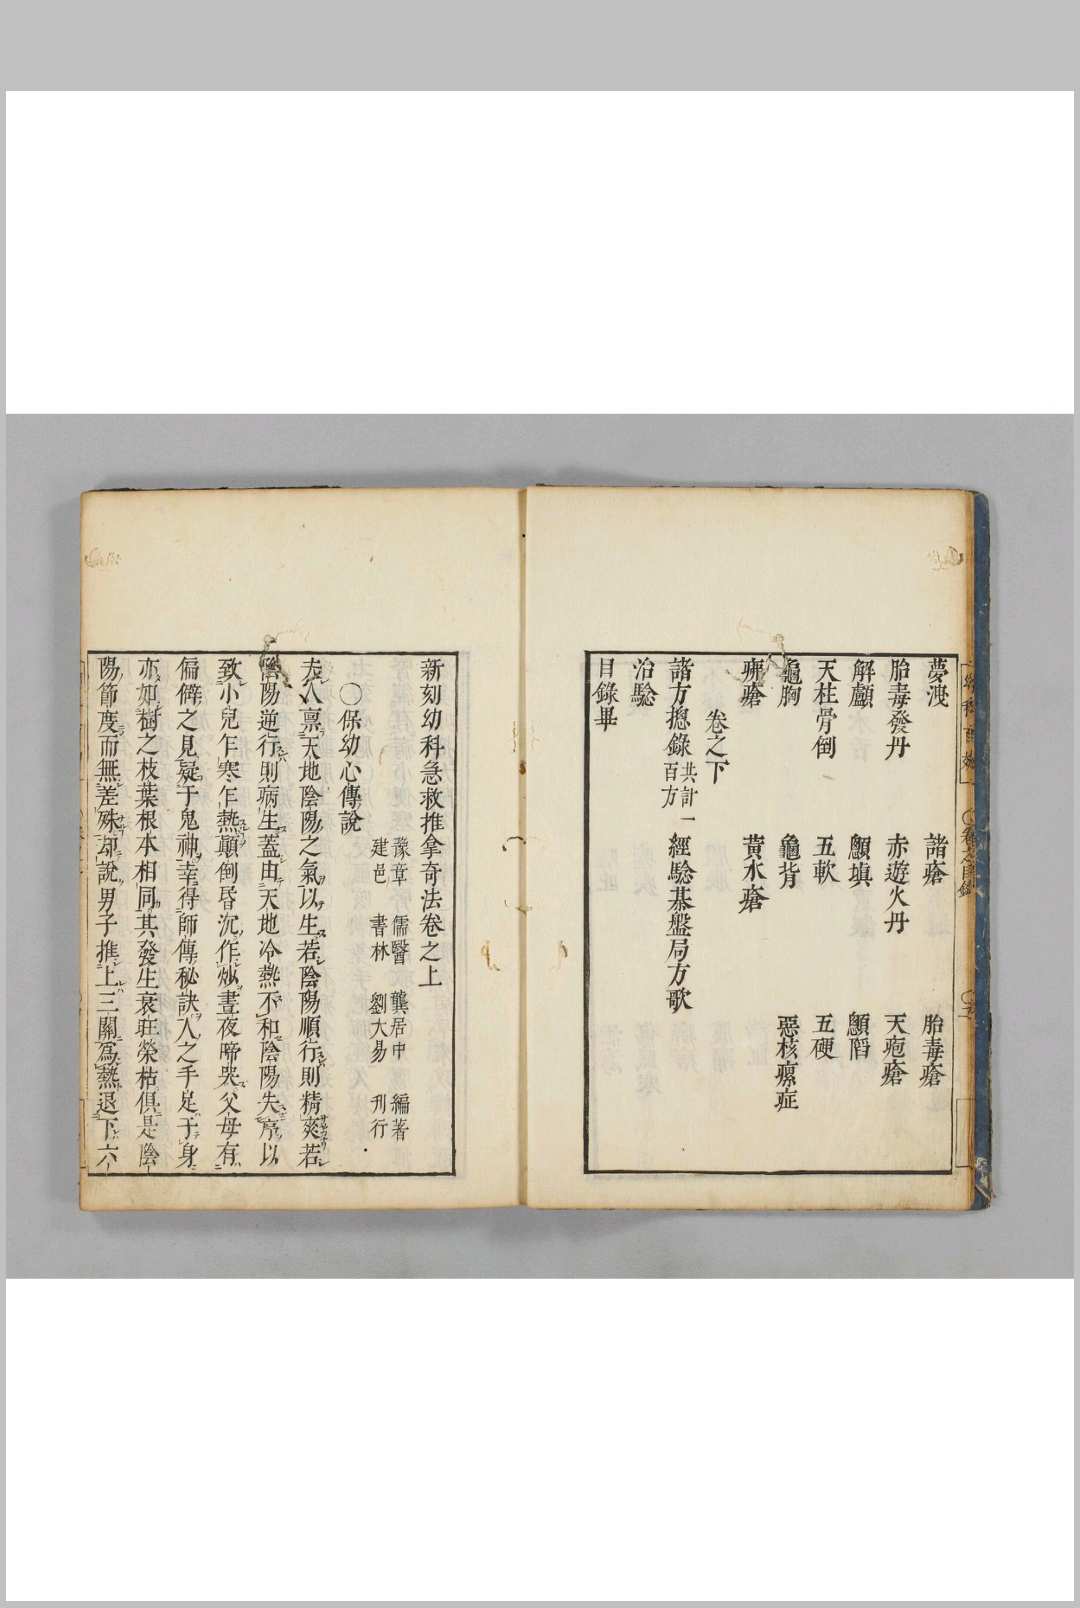 夢洩 諸瘡 胎毒瘡
胎毒發丹 赤遊火丹 天疱瘡
解顱 顖填 顖陷
天柱骨倒 五軟 五硬
龜胸 龜背 惡核瘰症
痱瘡 黃水瘡
卷之下
諸方摠錄 共計一百方 經驗棊盤局方歌
治驗
目錄畢
新刻幼科急救推拿奇法卷之上
豫章 儒醫 龔居中 編著
建邑 書林 劉大易 刊行
〇保幼心傳說
夫人禀天地陰陽之氣以生若陰陽順行則精爽若
陰陽逆行則病生蓋由天地冷熱不和陰陽失序以
致小兒乍寒乍熱顛倒昏沉作㶡晝夜啼哭父母有
偏僻之見疑于鬼神幸得師傳秘訣人之手足于身
亦如樹之枝葉根本相同其發生衰旺榮枯俱是陰
陽節度而無差殊却說男子推上三關為熱退下六